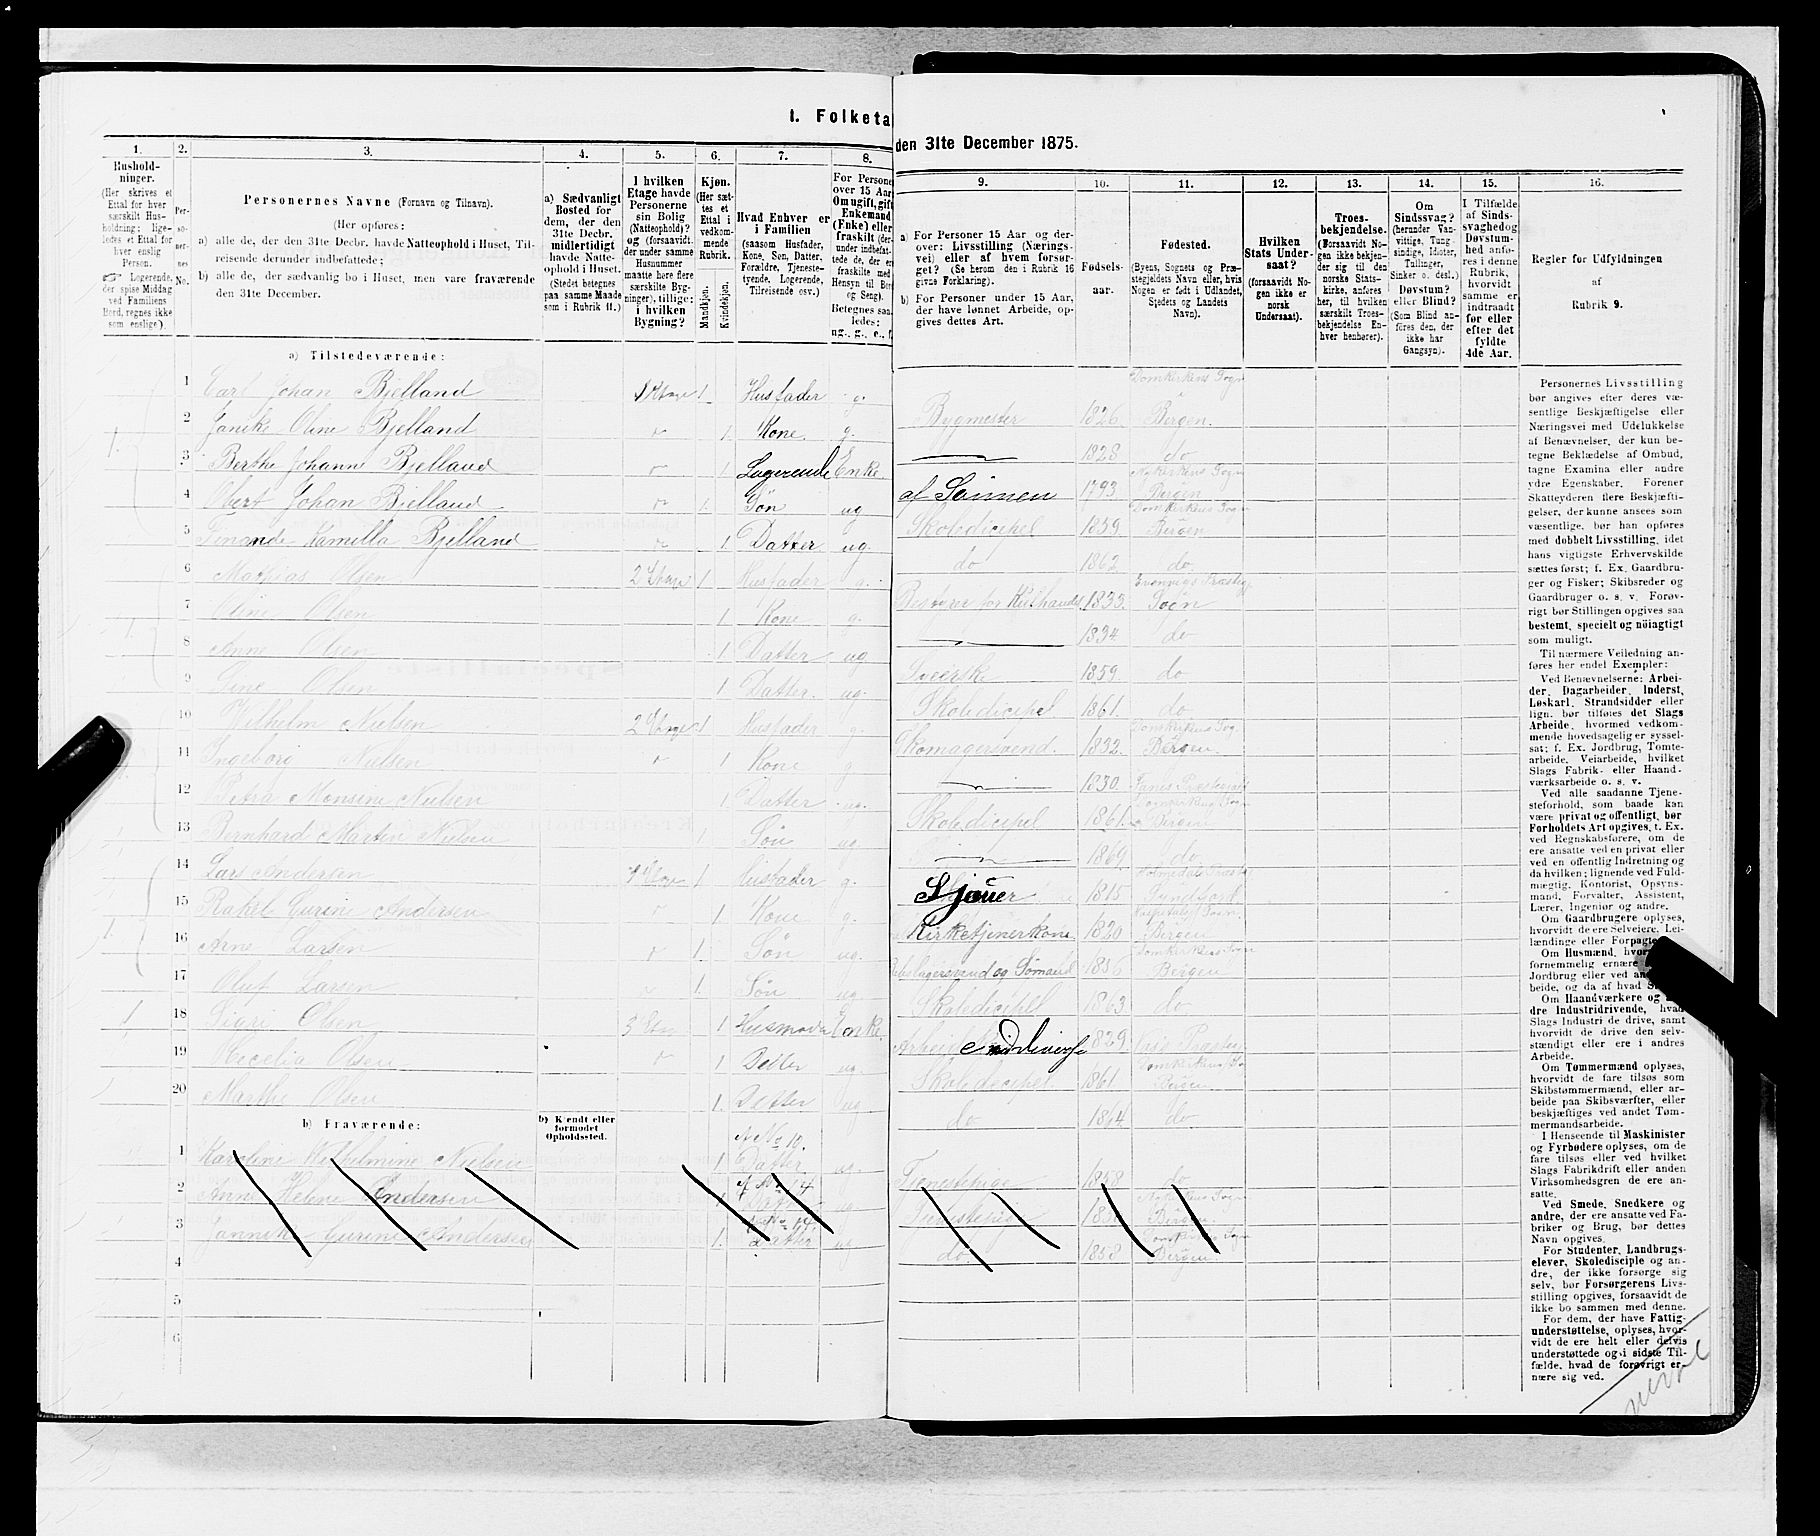 1. Folketa
den 31te December 1875.
1.
2.
3.
4.
5.
6.
7.
8.
Hushold-
ninger.
(Her skrives et
Ettal for hver
særskilt Hus-
holdning; lige-
ledes et Ettal for
hver enslig
Person.
☞ Logerende,
der spise Middag
ved Familiens
Bord, regnes ikke
som enslige).
Per-
so-
ner-
nes
No.
Personernes Navne (Fornavn og Tilnavn).
(Her opføres:
a) alle de, der den 31te Decbr. havde Natteophold i Huset, Til-
reisende derunder indbefattede;
b) alle de, der sædvanlig bo i Huset, men vare fraværende
den 31te December.
a) Sædvanligt
Bosted for
dem, der den
31te Decbr.
midlertidigt
havde Natte-
ophold i Huset.
(Stedet betegnes
paa samme Maade
som i Rubrik 11.)
I hvilken
Etage havde
Personerne
sin Bolig
(Natteophold)?
og (forsaavidt
der under samme
Husnummer
maatte høre flere
særskilte Byg-
ninger), tillige:
i hvilken
Bygning?
Kjøn.
(Her sæt-
tes et
Ettal i
vedkom-
mende
Rubrik.
Mandkjøn.
Kvindekjøn.
Hvad Enhver er
i Familien
(saasom Husfader,
Kone, Søn, Datter,
Forældre, Tjeneste-
tyende, Logerende,
Tilreisende osv.)
For Persone
over 15 Aar
Om ugift, gift
Enkemand
(Enke) eller
fraskilt (der-
under indbefat-
tede de, der er
fraskilte med
Hensyn til Bord
og Seng).
Betegnes saa-
ledes:
ug., g., e., f.
9.
10.
11.
12.
13.
14.
15.
16.
a) For Personer 15 Aar og der-
over: Livsstilling (Nærings-
vei) eller af hvem forsør-
get? (Se herom den i Rubrik 16
givne Forklaring).
b) For Personer under 15 Aar,
der have lønnet Arbeide, op-
gives dettes Art.
Fødsels-
aar.
Fødested.
(Byens, Sognets og Præ-
stegjeldets Navn eller, hvis
Nogen er født i Udlandet,
Stedets og Landets
Navn).
Hvilken
Stats Under-
saat?
(forsaavidt No-
gen ikke er
norsk
Undersaat).
Troes-
bekjendelse.
(Forsaavidt No-
gen ikke bekjen-
der sig til den
norske Stats-
kirke, anføres
her, til hvilken
særskilt Troes-
bekjendelse En-
hver henhører).
Om
Sindssvag?
(herunder Van-
vittige, Tung-
sindige, Idioter,
Tullinger,
Sinker o. desl.)
Døvstum?
eller Blind?
(Som Blind an-
føres den, der
ikke har
Gangsyn).
I Tilfælde
af Sinds-
svaghed og
Døvstum-
hed anfø-
res i denne
Rubrik,
hvorvidt
samme er
indtraadt
før eller
efter det
fyldte
4de Aar.
Regler for Udfyldningen
af
Rubrik 9.
a) Tilstedeværende:
1 Carl Johan Bjelland 1 Etage 1 Husfader g. Bygmester 1826. Domkirkens Sogn Bergen.
2 Janike Oline Bjelland 1. Kone. g. 1828 do
3 Berthe Johanne Bjelland 1 Logerende Enke. af Sønnen 1793. Nykirkens Sogn Bergen
4 Obert Johan Bjelland 1. Søn ug Skoledicipel 1859. Domkirkens Sogn Bergen
5 Kamilla Bjelland 1. Datter ug. do 1862. do.
6 Mathias Olsen 2 Etage 1 Husfader g. Præsteg Sogn 1833.
7 Oline Olsen 1 Kone g. 1834 do
8 Anne Olsen 1 Datter ug 1859. do
9 Sine Olsen 1 Datter. ug. Skoledicipel 1861. do
10 Wilhelm Nielsen 2 Etage 1 Husfader g Skomagersvend. 1832. Domkirkens Sog. Bergen
11 Ingeborg Nielsen 1 Kone g 1830. Præstegjeld
12 Petra Monsine Nielsen 1. Datter ug. Skoledicipel 1861. Domkirkens Sogn Bergen
13 Bernhard Martin Nielsen 1 Søn ug. 1869 do
14 Lars Andersen Etage 1 Husfader g. Sjouer 1815
15 Rakel Gurine Andersen 1. Kone Kirketjenerkone 1820 Sogn. Bergen
16 Arne Larsen 1. Søn ug. og Sømand 1856 Domkirkens Sogn Bergen
17 Oluf Larsen 1. Søn ug. Skoledicipel 1863. do
1 18 Sigri Olsen 3 Etag 1 Husmoder Enke. 1829
19 Cecelia Olsen 1 Datter ug Skoledicipel. 1861. Domkirkens So Bergen
20 Marthe Olsen 1. Datter ug do 1864 do
b) Fraværende:
b) Kjendt eller
formodet
Opholdssted.
1 Karoline Wilhelmine Nielsen 1 af No 10. Datter. ug Tjenestepige 1858 do
2 Anne Helene Andersen 1 af No 14 Datter Tjenestepige Nykirkens Sogn Bergen
3 Gurine Andersen 1. af No 14 Datter ug do. 1858 Domkirkens Sogn Bergen.
4
5
6
Personernes Livsstilling
bør angives efter deres væ-
sentlige Beskjæftigelse eller
Næringsvei med Udelukkelse
af Benævnelser, der kun be-
tegne Beklædelse af Ombud,
tagne Examina eller andre
ydre Egenskaber. Forener
Skatteyderen flere Beskjæfti-
gelser, der kunne ansees som
væsentlige, bør han opføres
med dobbelt Livsstilling, idet
hans vigtigste Erhvervskilde
sættes først; f. Ex. Gaardbru-
ger og Fisker; Skibsreder og
Gaardbruger o. s. v. Forøv-
rigt bør Stillingen opgives saa
bestemt, specielt og nöiagtigt
som muligt.
Til nærmere Veiledning an-
føres her endel Exempler:
Ved Benævnelserne: Arbei-
der, Dagarbeider, Inderst,
Løskarl, Strandsidder eller
lign. bør tilføies det Slags
Arbeide, hvormed vedkom-
mende hovedsagelig er syssel-
sat; f. Ex. Jordbrug, Tomte-
arbeide, Veiarbeide, hvilket
Slags Fabrik- eller Haand-
værksarbeide o. s. v.
Ved alle saadanne Tjene-
steforhold, som baade kan
være privat og offentligt, bør
Forholdets Art opgives, t. Ex.
ved Regnskabsførere, om de
ere ansatte ved en privat eller
ved en offentlig Indretning og
da hvilken; lignende ved Fuld-
mægtig, Kontorist, Opsyns-
mand, Forvalter, Assistent,
Lærer, Ingeniør og andre.
Om Gaardbrugere oplyses,
hvorvidt de ere Selveiere, Lei-
lændinge eller Forpagtere
Om Husmænd,
fornemmelig ernære
Jordbrug eller ved
beide, og da af hvad
Om Haandværkere og
dre Industridrivende,
Slags Industri de drive, samt
hvorvidt de drive den selv-
stændigt eller ere i andres
Arbeide.
Om Tømmermænd oplyses,
hvorvidt de fare tilsøs som
Skibstømmermænd, eller ar-
beide paa Skibsværfter, eller
beskjæftiges ved andet Tøm-
mermandsarbeide.
I Henseende til Maskinister
og Fyrbødere oplyses, om de
fare tilsøs eller ved hvilket
Slags Fabrikdrift eller anden
Virksomhedsgren de ere an-
satte.
Ved Smede, Snedkere og
andre, der ere ansatte ved Fa-
briker og Brug, bør dettes
Navn opgives.
For Studenter, Landbrugs-
elever, Skoledisciple og an-
dre, der ikke forsørge sig
selv, bør Forsørgerens Livs-
stilling opgives, forsaavidt de
ikke bo sammen med denne.
For dem, der have Fattig-
understøttelse, oplyses, hvor-
vidt de ere helt eller delvis
understøttede og i sidste Til-
fælde, hvad de forøvrigt er-
nære sig ved.